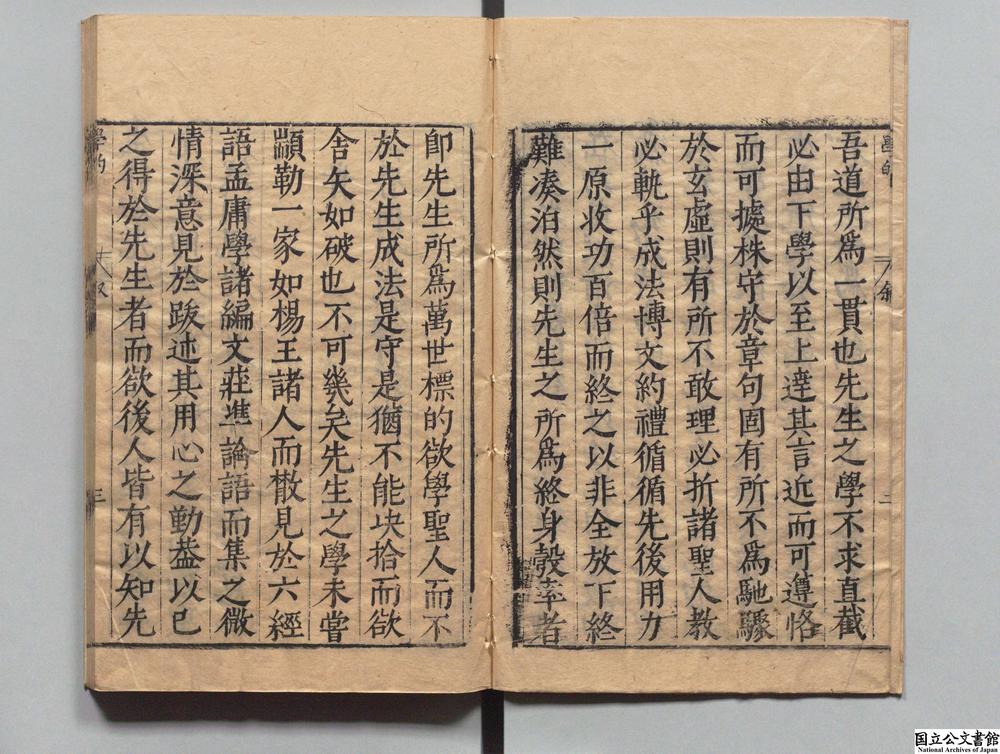 吾道所爲一貫也先生之學不求直截
必由下學以至上達其言近而可遵恪
而可據株守於章句固有所不爲馳驟
於玄虛則有所不敢理必折諸聖人教
必軌乎成法博文約禮循循先後用力
一原收功百倍而終之以非全放下終
難凑泊然則先生之所爲終身彀率者
卽先生所爲萬世標的欲學聖人而不
於先生成法是守是猶不能决拾而欲
舍矢如破也不可幾矣先生之學未嘗
顓勒一家如楊王諸人而散見於六經
語孟庸學諸編文莊準論語而集之微
情深意見於跋述其用心之勤葢以已
之得於先生者而欲後人皆有以知先
學的
叙
二
學的
叙
三
国立公文書館
National Archives of Japan